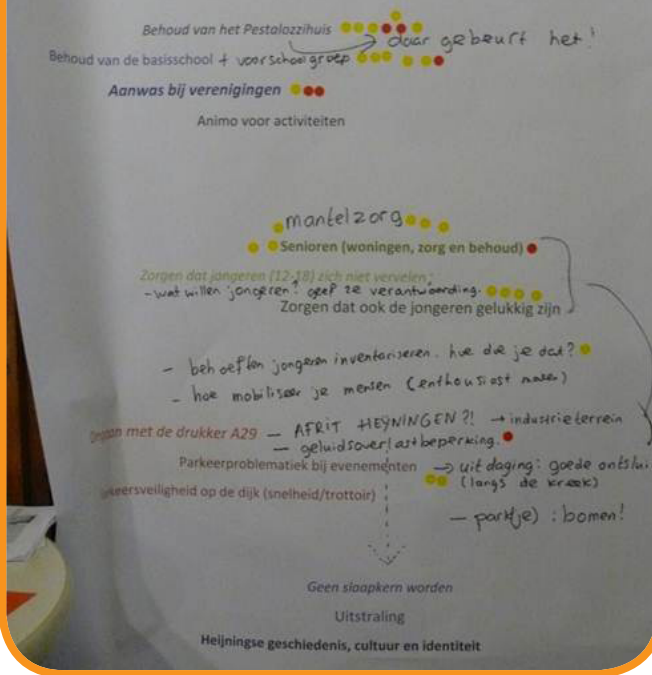 Behoud van het Pestalozzihuis
daar gebeurt het!
Behoud van de basisschool + voorschoolgroep
Aanwas bij verenigingen
Animo voor activiteiten
mantelzorg
Senioren (woningen, zorg en behoud)
Zorgen dat jongeren (12-18) zich niet vervelen;
- wat willen jongeren? geef ze verantwoording.
Zorgen dat ook de jongeren gelukkig zijn
- behoeften jongeren inventariseren. hoe doe je dat?
- hoe mobiliseer je mensen (enthousiast maken)
met de drukker A29 - AFRIT HEYNINGEN?! → industrieterrein
- geluidsoverlastbeperking.
Parkeerproblematiek bij evenementen → uitdaging: goede ontslui
(langs de kreek)
keersveiligheid op de dijk (snelheid/trottoir)
- parkje) : bomen!
Geen slaapkern worden
Uitstraling
Heijningse geschiedenis, cultuur en identiteit